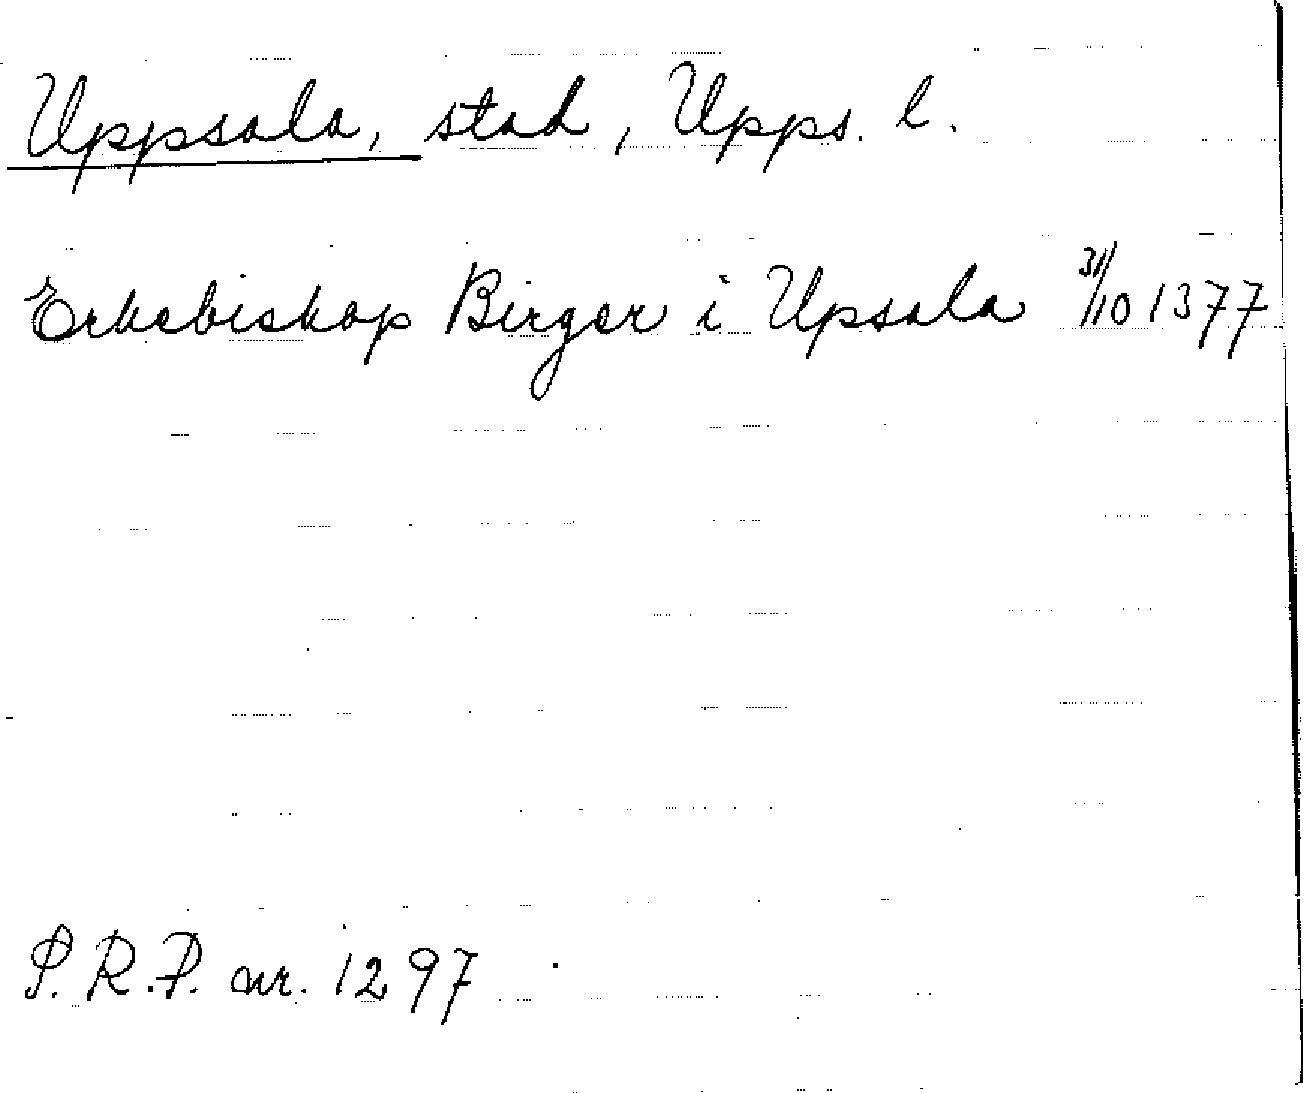 Uppsala, stad, Upps. l.
Erkebiskop Birger i Upsala 31/10 1377
P.R.P. nr. 1297